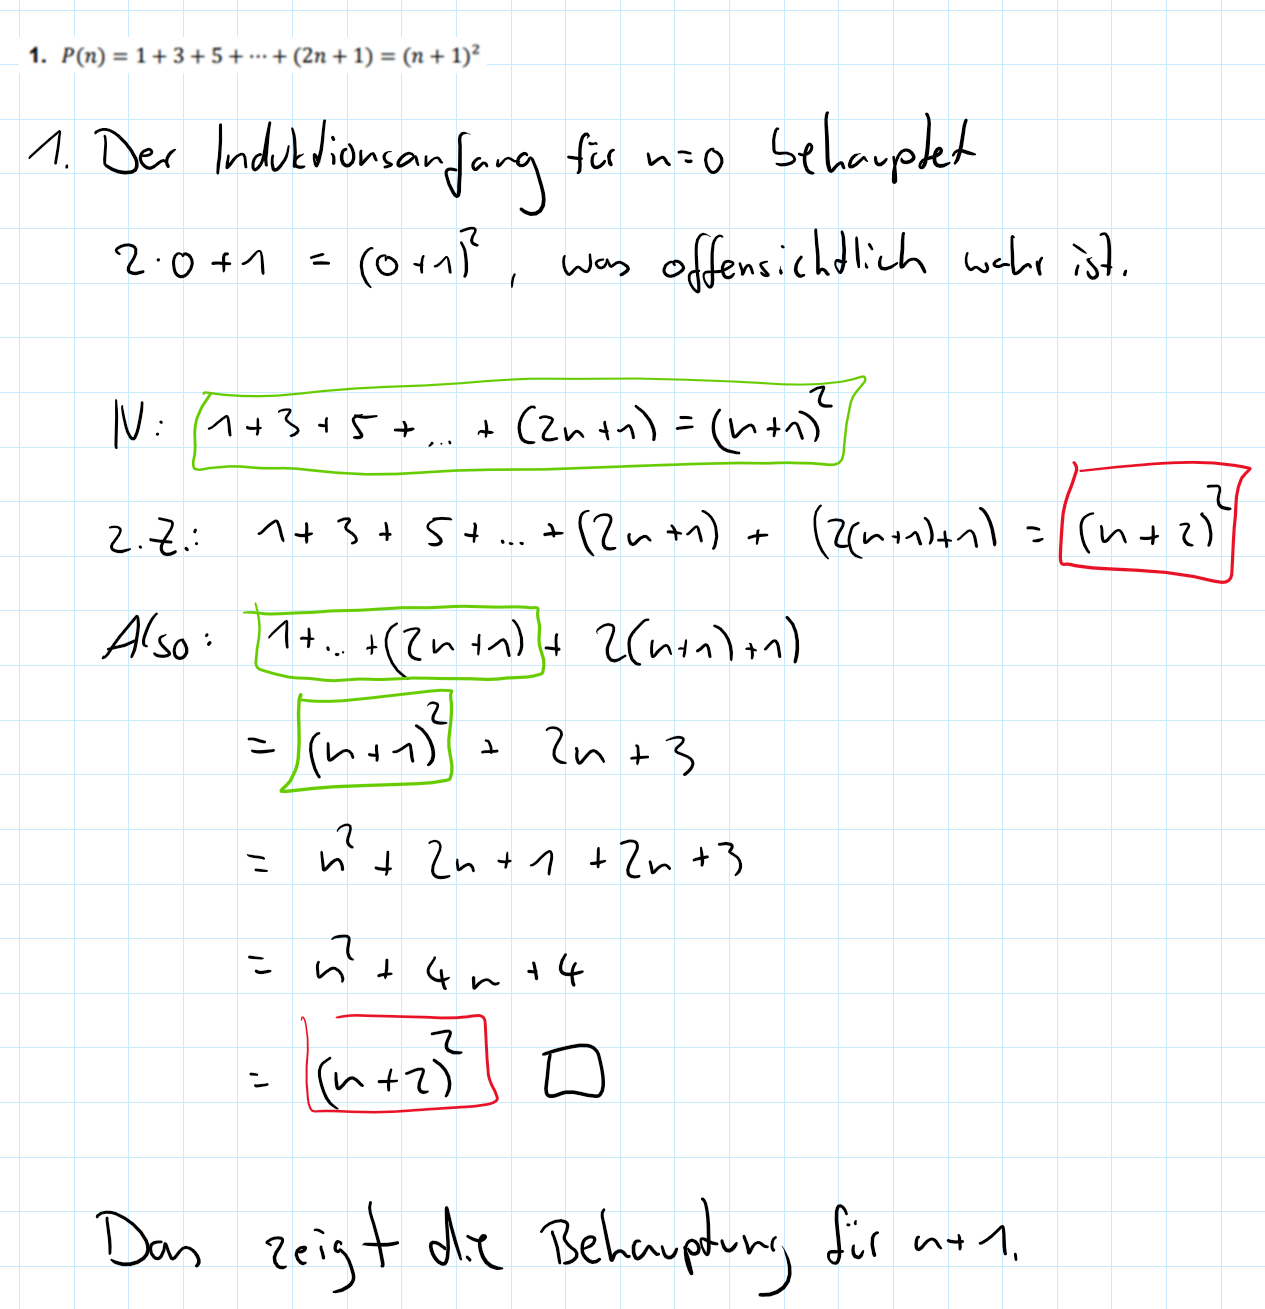 1. P(n) = 1 + 3 + 5 + ⋯ + (2n + 1) = (n + 1)²
1. Der Induktionsanfang für n=0 behauptet
2·0+1 = (0+1)², was offensichtlich wahr ist.
IV: 1+3+5+...+(2n+1)=(n+1)²
z.Z.: 1+3+5+...+(2n+1) + (2(n+1)+1) = (n+2)²
Also: 1+...+(2n+1)+ 2(n+1)+1)
= (n+1)² + 2n+3
= n² + 2n+1+2n+3
= n² + 4n+4
= (n+2)² □
Das zeigt die Behauptung für n+1.